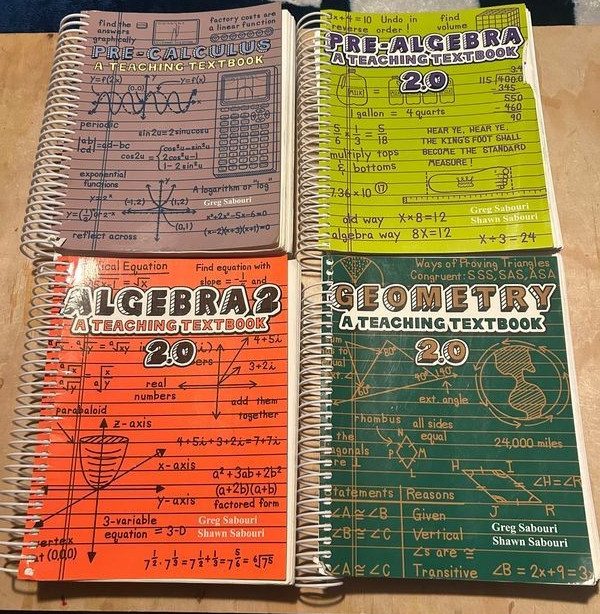 find the
answers
graphically
factory costs are
a linear function
PRE-CALCULUS
A TEACHING TEXTBOOK
y=f(x)
(0,0)
periodic
sin2u=2sinucosu
=ad-bc
cos2u=
cos²u-sin²u
2cos²u-1
1-2sin²u
exponential
functions
(-1,2)
(1,2)
(1,1)
A logarithm or "log"
Greg Sabouri
(x-2)(x+3)(x+1)=0
reflect across
3x+4=10 Undo in
reverse order
find
volume
PRE-ALGEBRA
A TEACHING TEXTBOOK
2.0
MILK
1 gallon = 4 quarts
115
400.0
-345
550
-460
90
multiply tops
& bottoms
HEAR YE, HEAR YE.
THE KING'S FOOT SHALL
BECOME THE STANDARD
MEASURE!
7.36 x 10
17
Greg Sabouri
Shawn Sabouri
old way x×8=12
algebra way 8x=12
x÷3=24
ical Equation
Find equation with
slope = and
ALGEBRA 2
A TEACHING TEXTBOOK
2.0
4+5i
3+2i
real
numbers
add them
together
paraboloid
z-axis
4+5i+3+2i=7+7i
x-axis
y-axis
a²+3ab+2b²
(a+2b)(a+b)
factored form
3-variable
equation = 3-D
Greg Sabouri
Shawn Sabouri
vertex
at (0,0,0)
Ways of Proving Triangles
Congruent: SSS, SAS, ASA
GEOMETRY
A TEACHING TEXTBOOK
2.0
80°
60°
40°
140°
ext. angle
rhombus
all sides
equal
N
P
L
M
24,000 miles
H
I
J
R
Statements
Reasons
∠A≅∠B
Given
∠B≅∠C
Vertical
∠s are ≅
∠A≅∠C
Transitive
Greg Sabouri
Shawn Sabouri
∠B = 2x+9=3